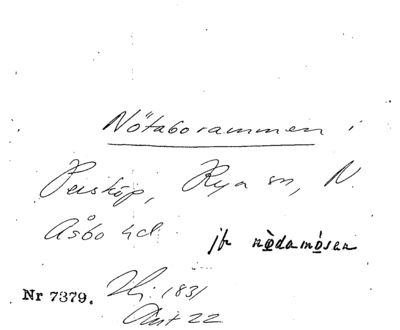 Nötaborammen i
Perstop, Rya sn, N.
Åsbo hd. jfr nòdamósen
Nr 7379. Hj. 1831
Akt 22